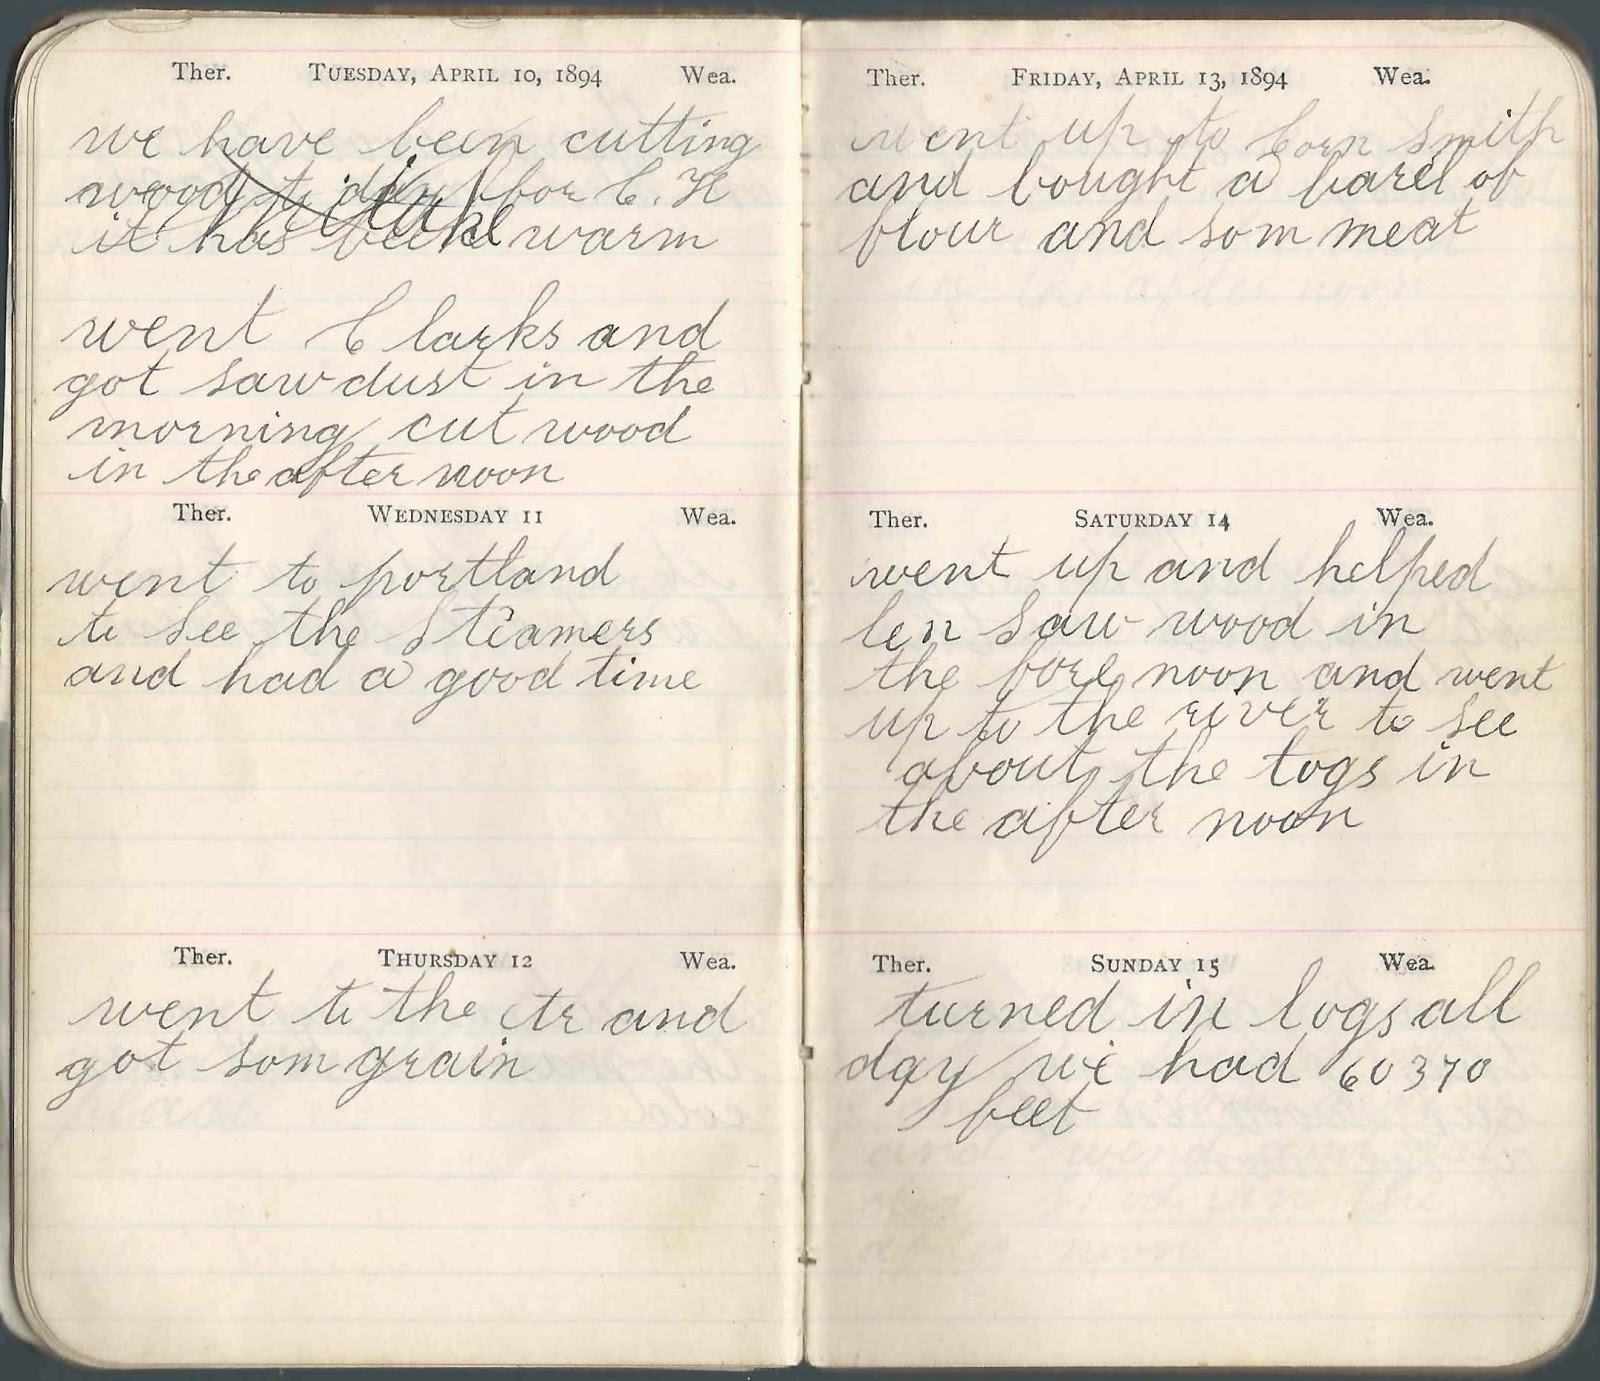 Ther. TUESDAY, APRIL 10, 1894 Wea.
we have been cutting
wood to day for C. H
it has been warm
went Clarks and
got sawdust in the
morning cut wood
in the after noon
Ther. WEDNESDAY 11 Wea.
went to portland
to see the Steamers
and had a good time
Ther. THURSDAY 12 Wea.
went to the ctr and
got som grain
Ther. FRIDAY, APRIL 13, 1894 Wea.
went up to Corn Smith
and bought a barel of
flour and som meat
Ther. SATURDAY 14 Wea.
went up and helped
len saw wood in
the fore noon and went
up to the river to see
about the logs in
the after noon
Ther. SUNDAY 15 Wea.
turned in logs all
day we had 60370
feet